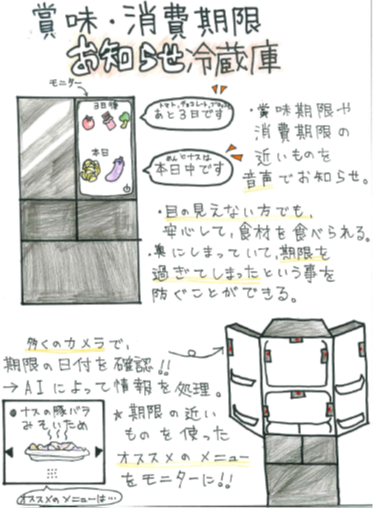 賞味・消費期限
お知らせ冷蔵庫
モニター
3日後
本日
あと3日です
めんとナスは
本日中です
・賞味期限や
消費期限の
近いものを
音声でお知らせ。
・目の見えない方でも、
安心して、食材を食べられる。
・奥にしまっていて、期限を
過ぎてしまったという事を
防ぐことができる。
多くのカメラで、
期限の日付を確認!!
→AIによって情報を処理。
★期限の近い
ものを使った
オススメのメニュー
をモニターに!!
ナスの豚バラ
みそいため
オススメのメニューは…